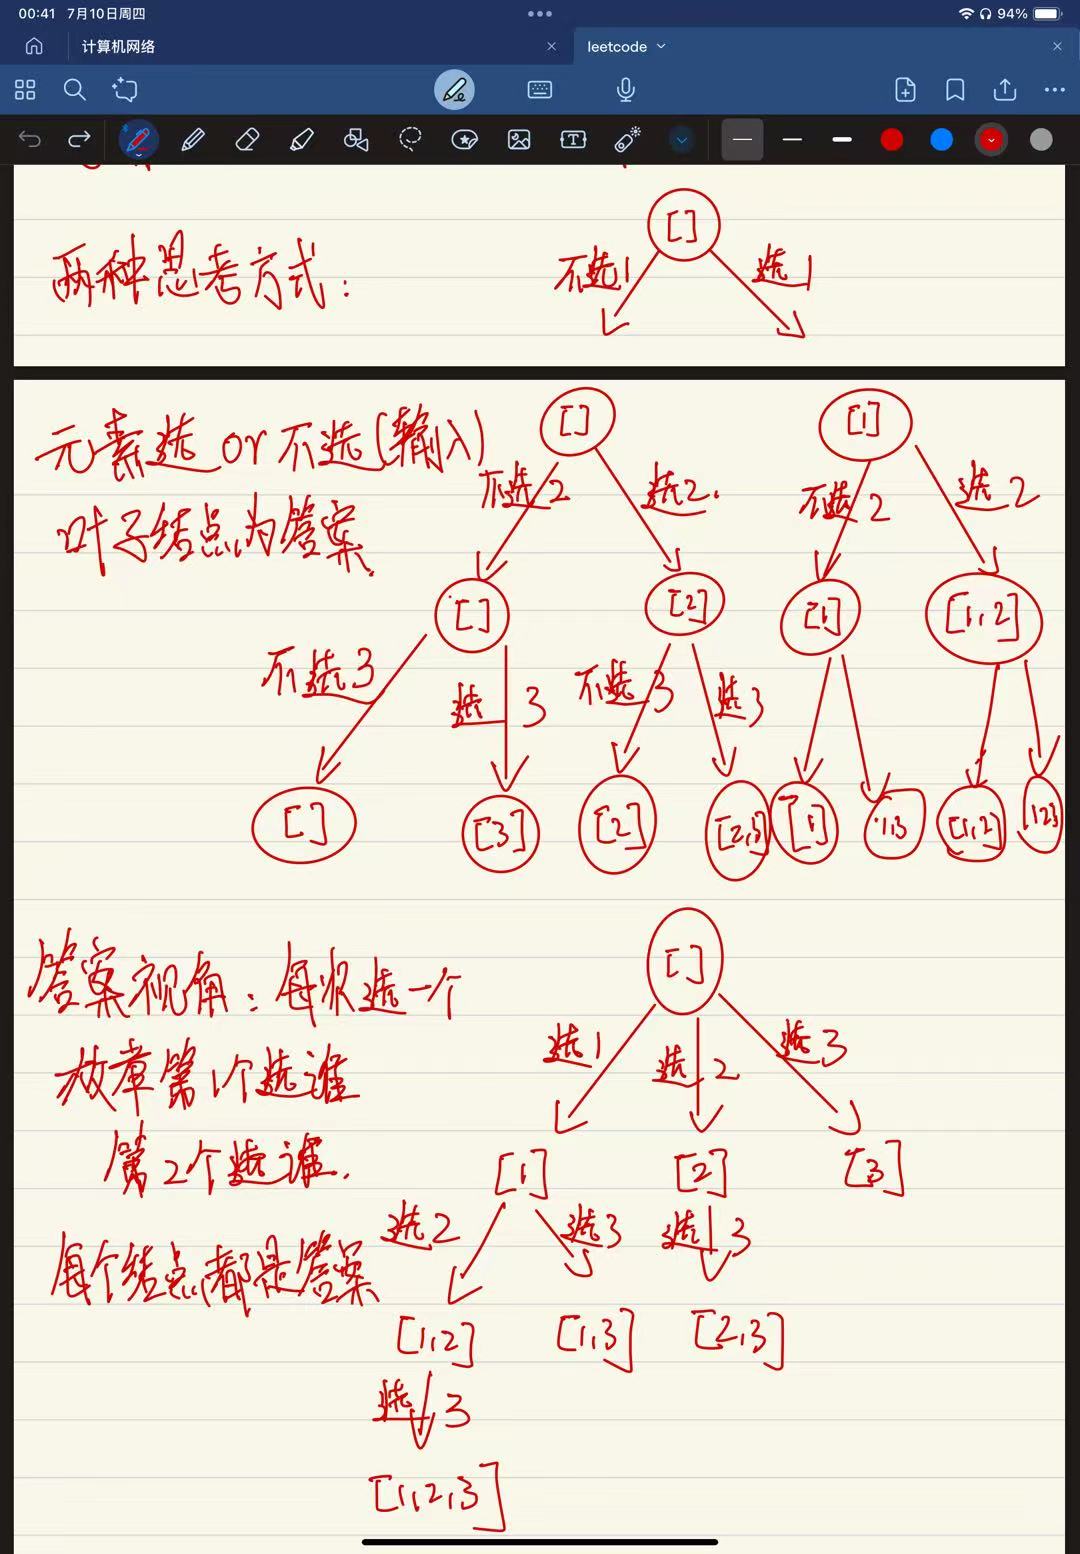 00:41 7月10日周四
94%
计算机网络
leetcode
两种思考方式:
[]
不选1 选1
元素选 or 不选(输入)
叶子结点为答案.
[] [1]
不选2 选2. 不选2 选2
[] [2] [1] [1,2]
不选3 选3 不选3 选3
[] [3] [2] [2,3] [1] 1,3 [1,2] 123
答案视角:每次选一个
枚章第1个选谁
第2个选谁.
每个结点都是答案
[]
选1 选2 选3
[1] [2] [3]
选2 选3 选3
[1,2] [1,3] [2,3]
选3
[1,2,3]